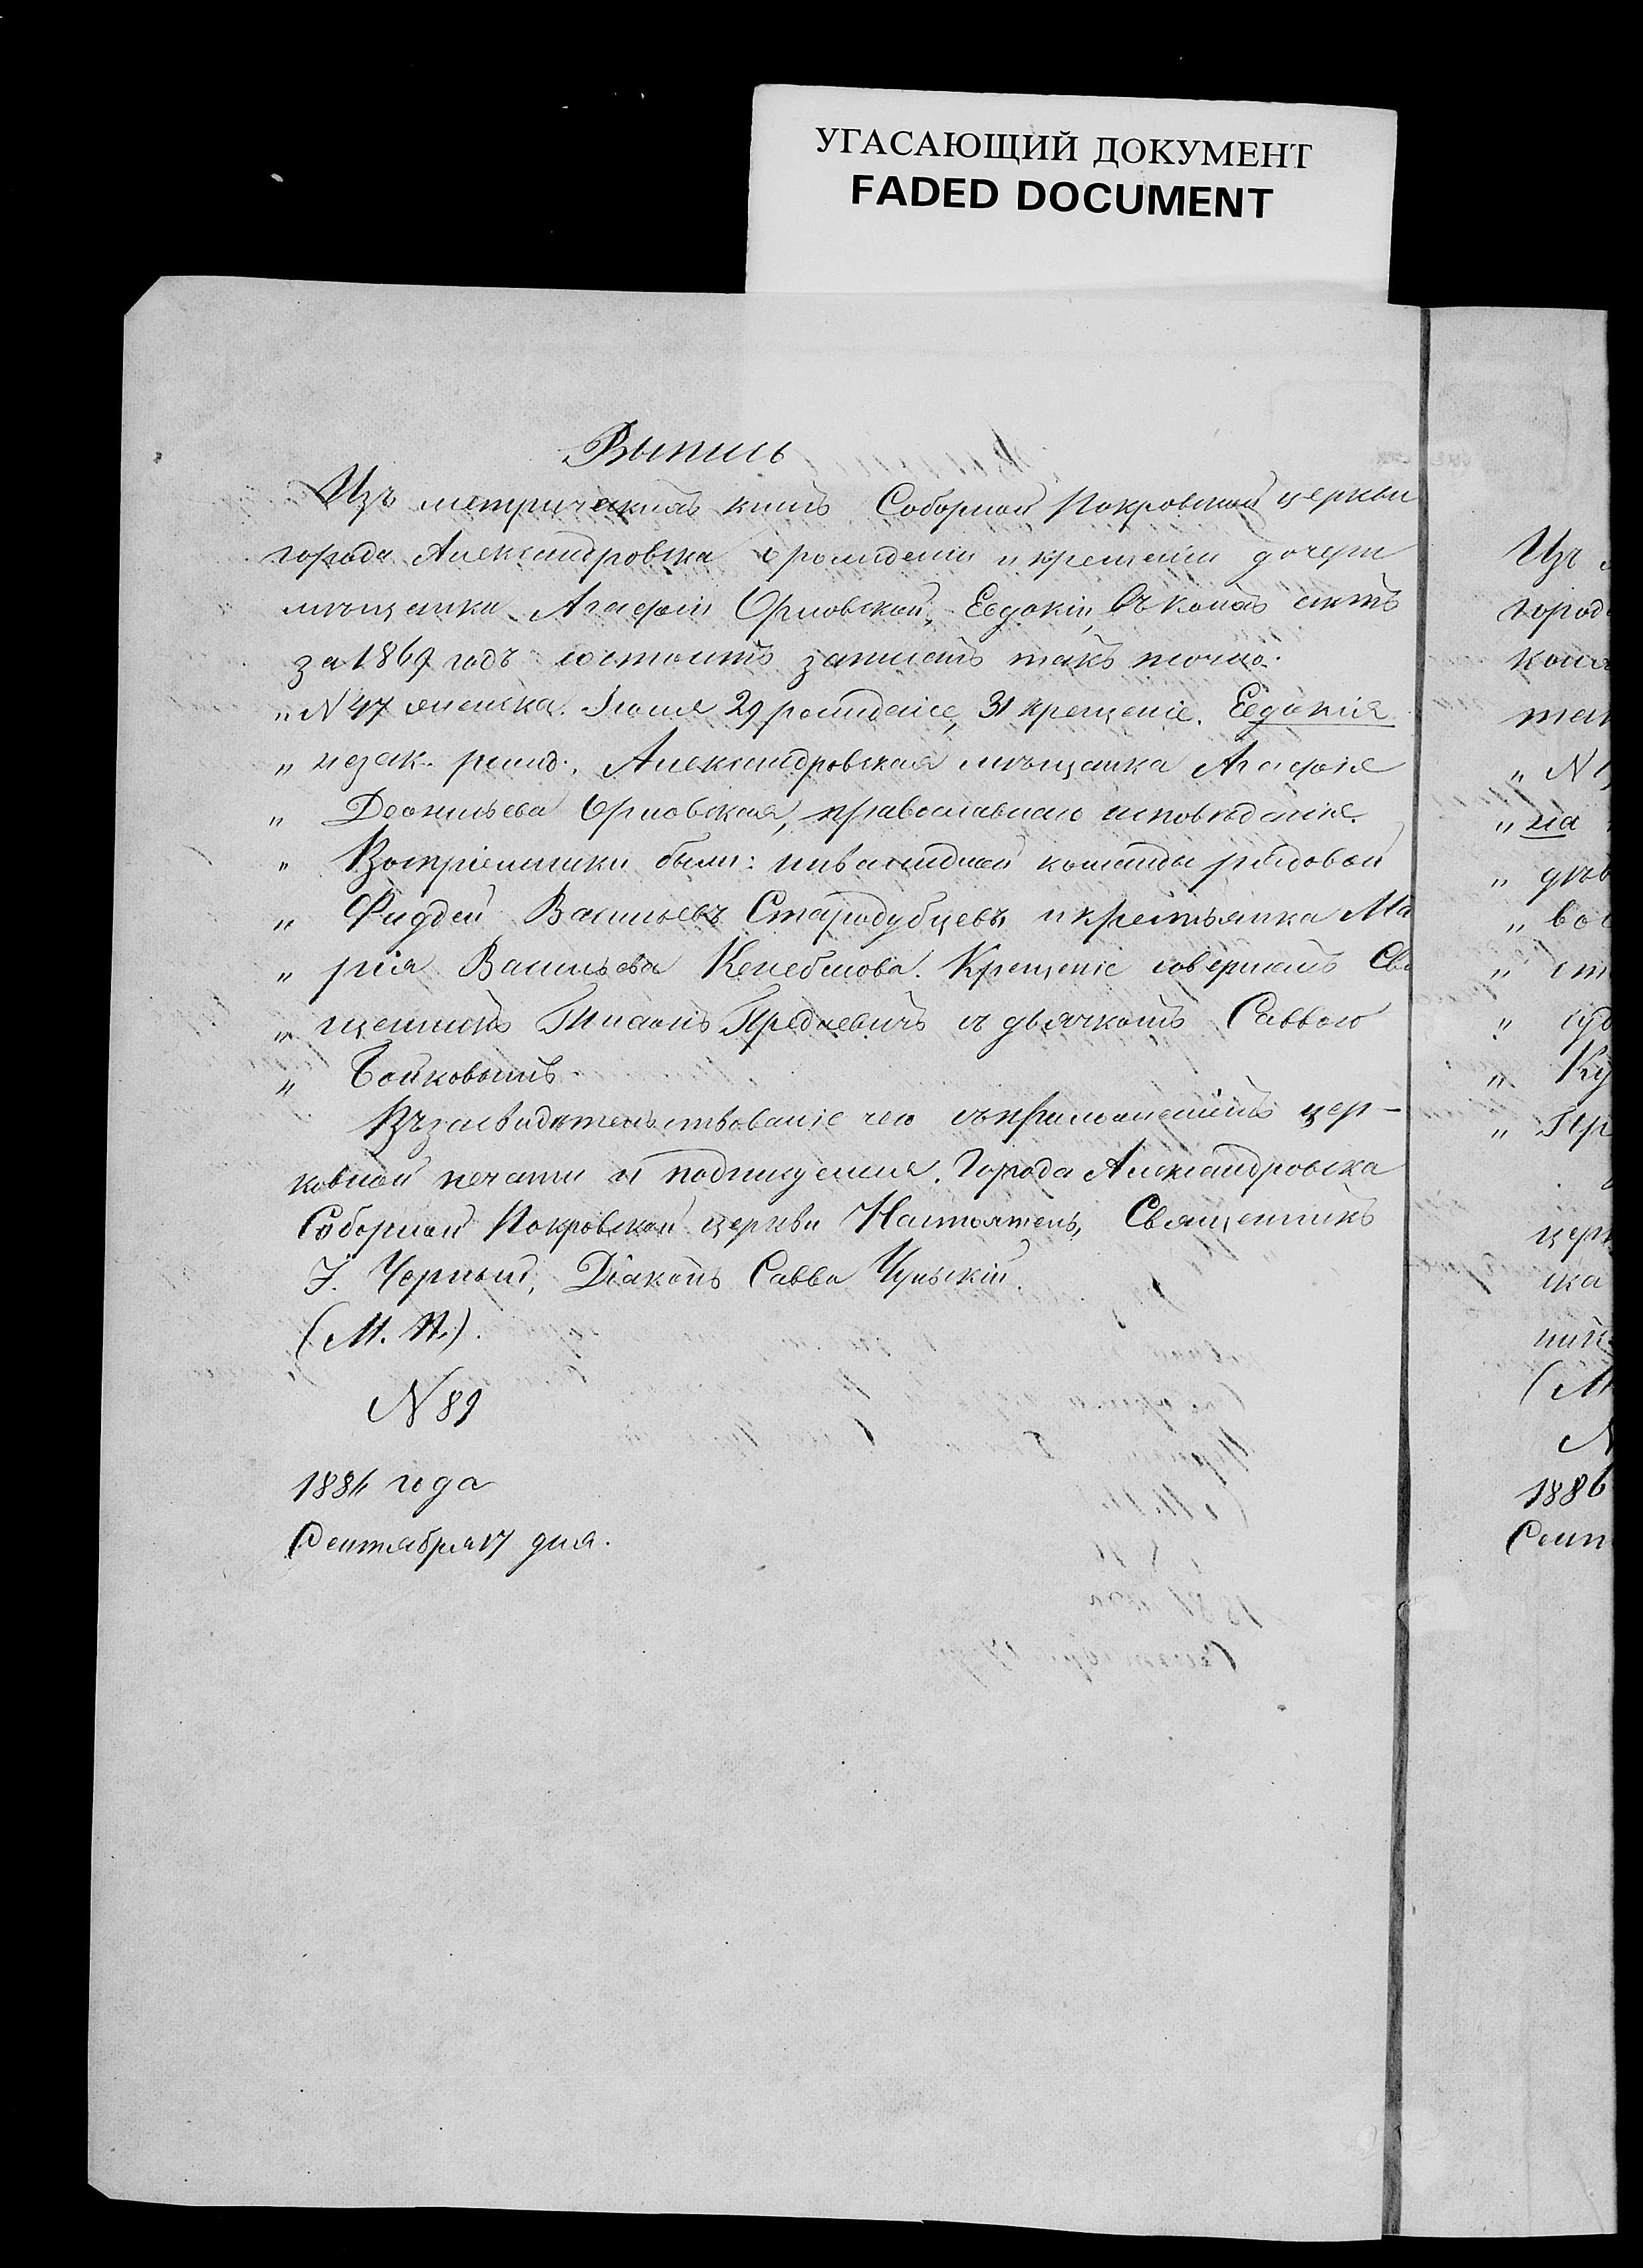 УГАСАЮЩИЙ ДОКУМЕНТ
FADED DOCUMENT
Выпись
Изъ метрическихъ книгъ Соборной Покровской церкви
города Александровска о рожденіи и крещеніи дочери
мѣщанки Агафіи Орловской, Евдокіи, въ коихъ актъ
за 1869 годъ состоитъ записанъ такъ точно:
„ N 47 женска. Іюля 29 рожденіе, 31 крещеніе. Евдокія
„ незак. рожд. Александровская мѣщанка Агафія
„ Леонтьева Орловская, православнаго исповѣданія.
„ Воспріемники были: инвалидной команды рядовой
„ Фадѣй Васильевъ Стародубцевъ и крестьянка Ма
„ рія Васильева. Крещеніе совершалъ Свя
„ щенникъ съ дьячкомъ Саввою
„ Бойковымъ.
Въ засвидѣтельствованіе чего съ приложеніемъ цер-
ковной печати и подпишемся. Города Александровска
Соборной Покровской церкви Настоятель, Священникъ
І. Чорный, Діаконъ Савва
(М. П.).
N 89
1886 года
Сентября 17 дня.
Изъ
город
коихъ
так
„ N
„ на
„ дѣв
„ вос
„ ст
„
„ Ку
„ Пр
церк
ска
ник
(М
N
1886
Сент